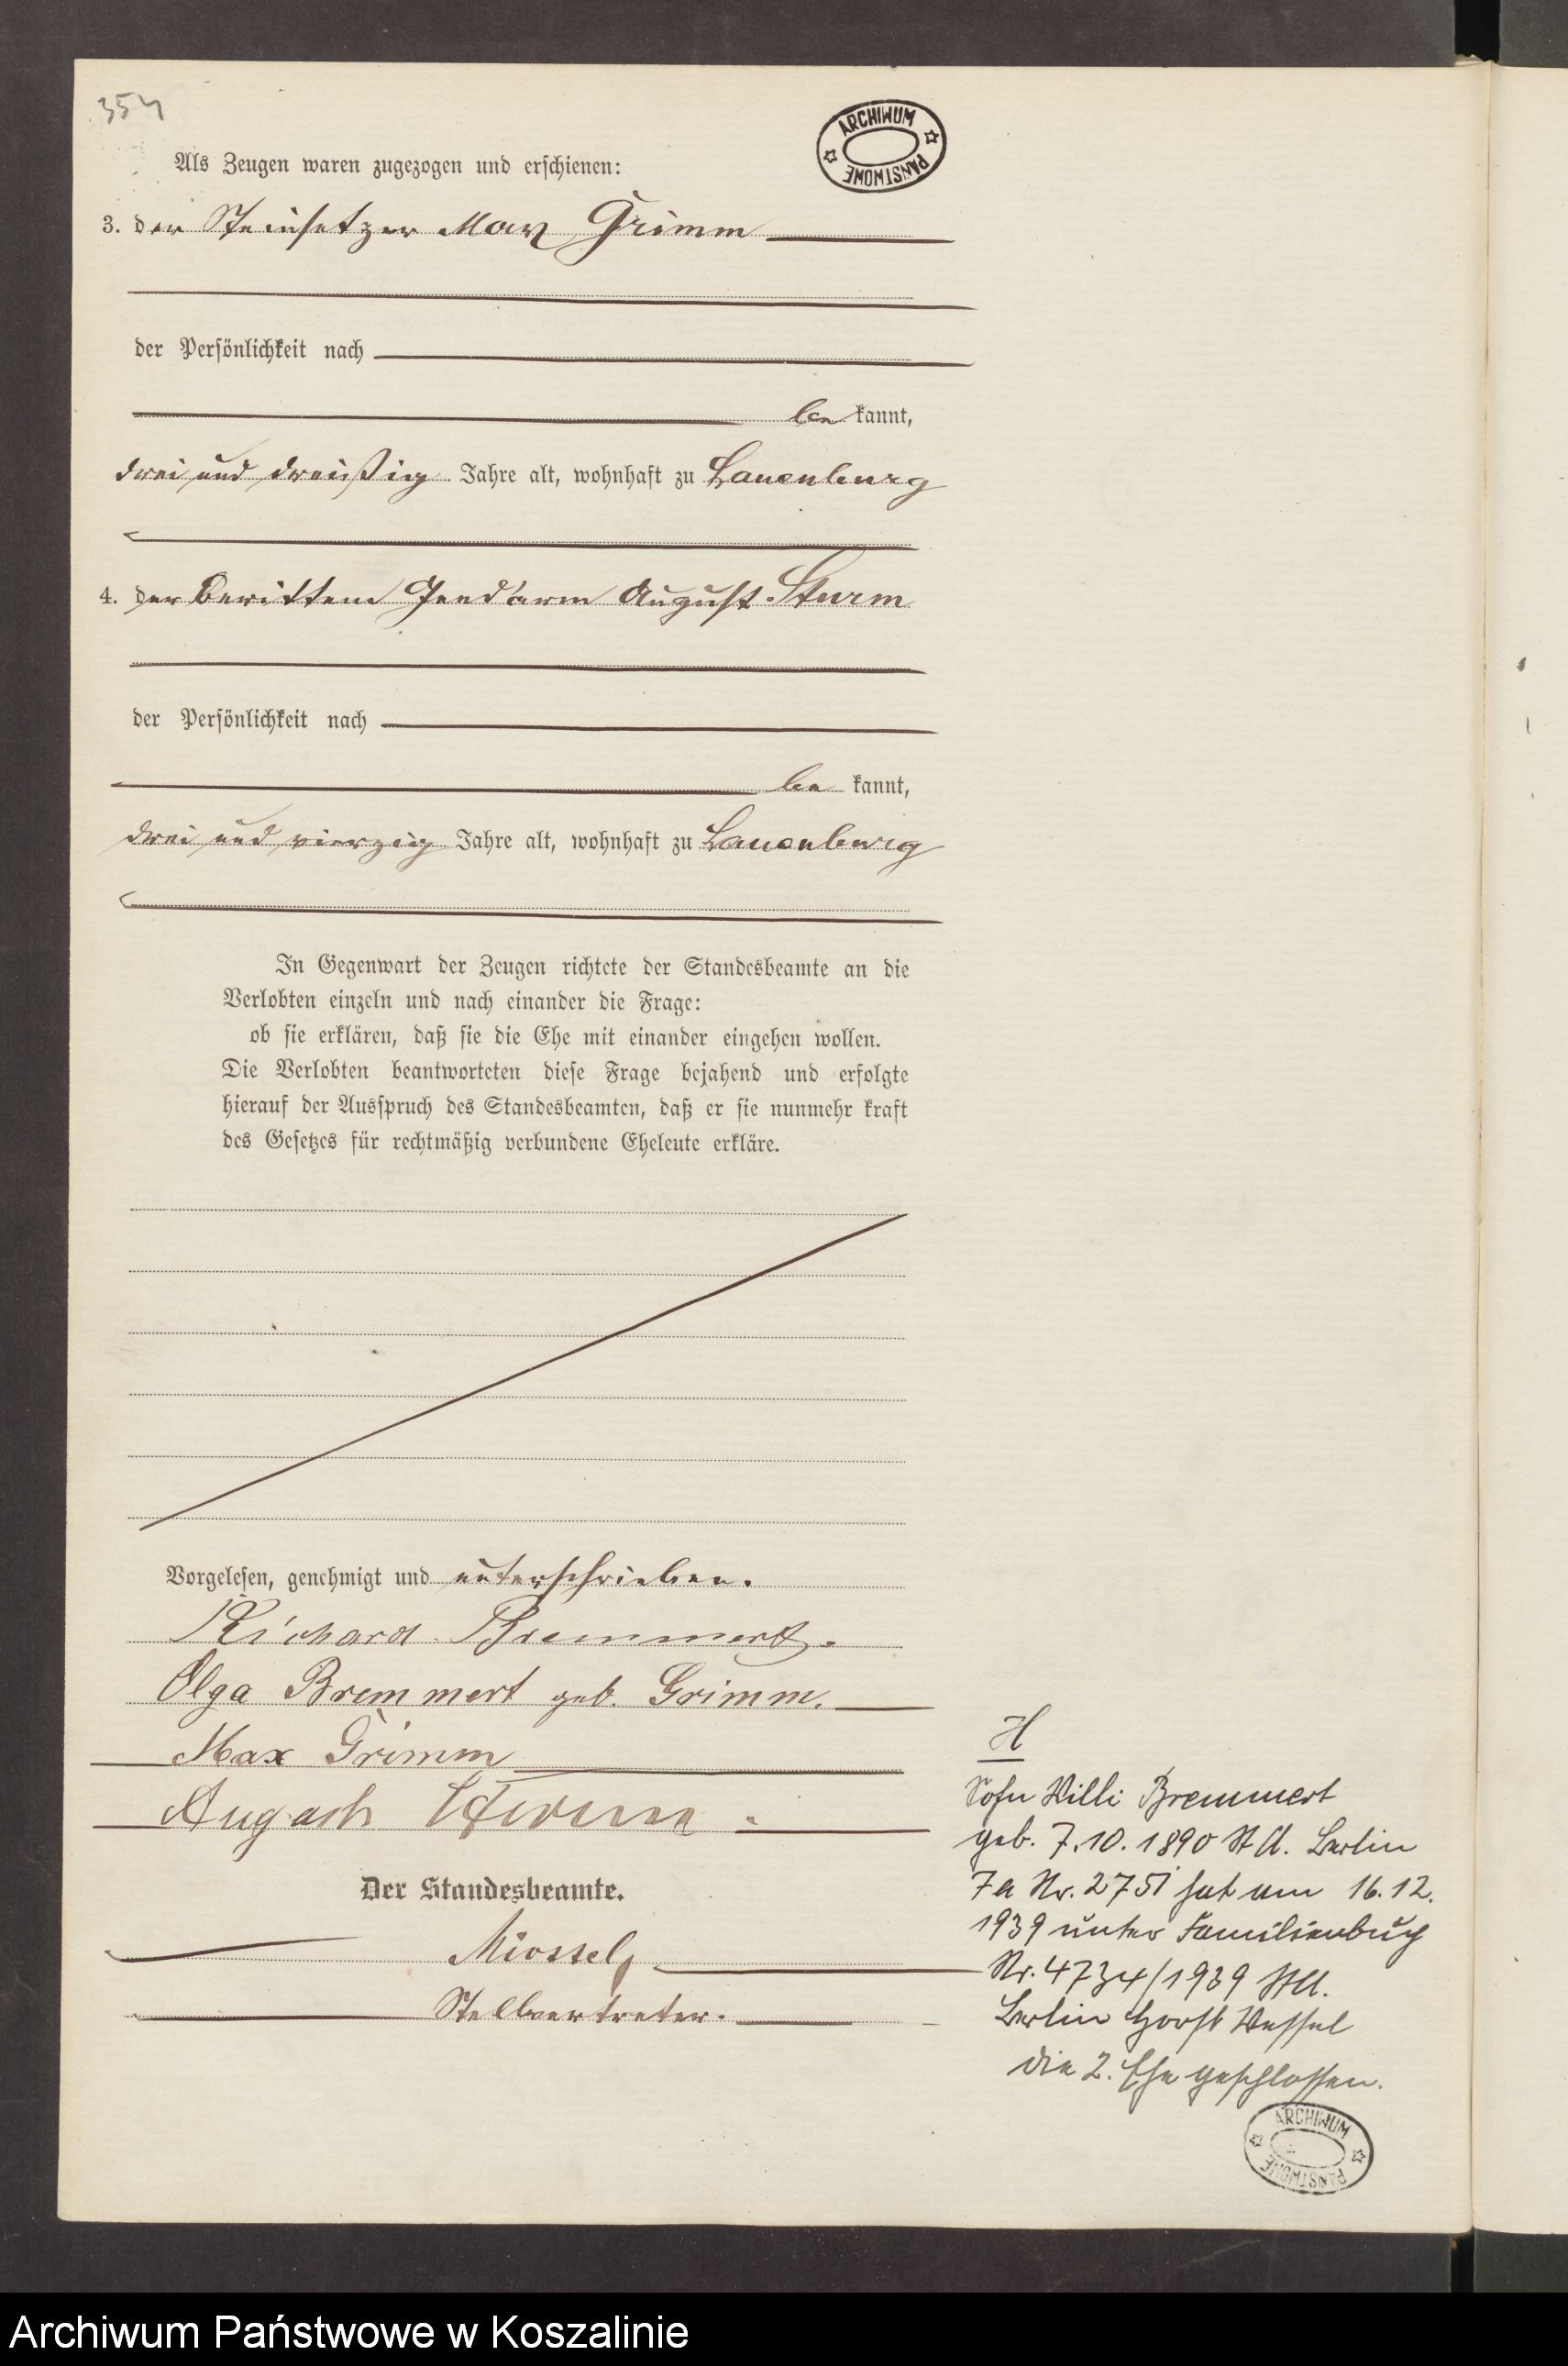 354
ARCHIWUM PAŃSTWOWE
Als Zeugen waren zugezogen und erschienen:
3. der Steinsetzer Max Grimm
der Persönlichkeit nach
be kannt,
drei und dreißig Jahre alt, wohnhaft zu Lauenburg
4. der berittene Gendarm August Sturm
der Persönlichkeit nach
be kannt,
drei und vierzig Jahre alt, wohnhaft zu Lauenburg
In Gegenwart der Zeugen richtete der Standesbeamte an die
Verlobten einzeln und nach einander die Frage:
ob sie erklären, daß sie die Ehe mit einander eingehen wollen.
Die Verlobten beantworteten diese Frage bejahend und erfolgte
hierauf der Ausspruch des Standesbeamten, daß er sie nunmehr kraft
des Gesetzes für rechtmäßig verbundene Eheleute erkläre.
Vorgelesen, genehmigt und unterschrieben.
Richard Bremmert.
Olga Bremmert geb. Grimm.
Max Grimm
August Sturm
Der Standesbeamte.
Stellvertreter.
H
Sohn Willi Bremmert
geb. 7.10.1890 StA. Berlin
7a Nr. 2751 hat am 16.12.
1939 unter Familienbuch
Nr. 4734/1939 StA.
Berlin Horst Wessel
die 2. Ehe geschlossen.
ARCHIWUM PAŃSTWOWE
Archiwum Państwowe w Koszalinie